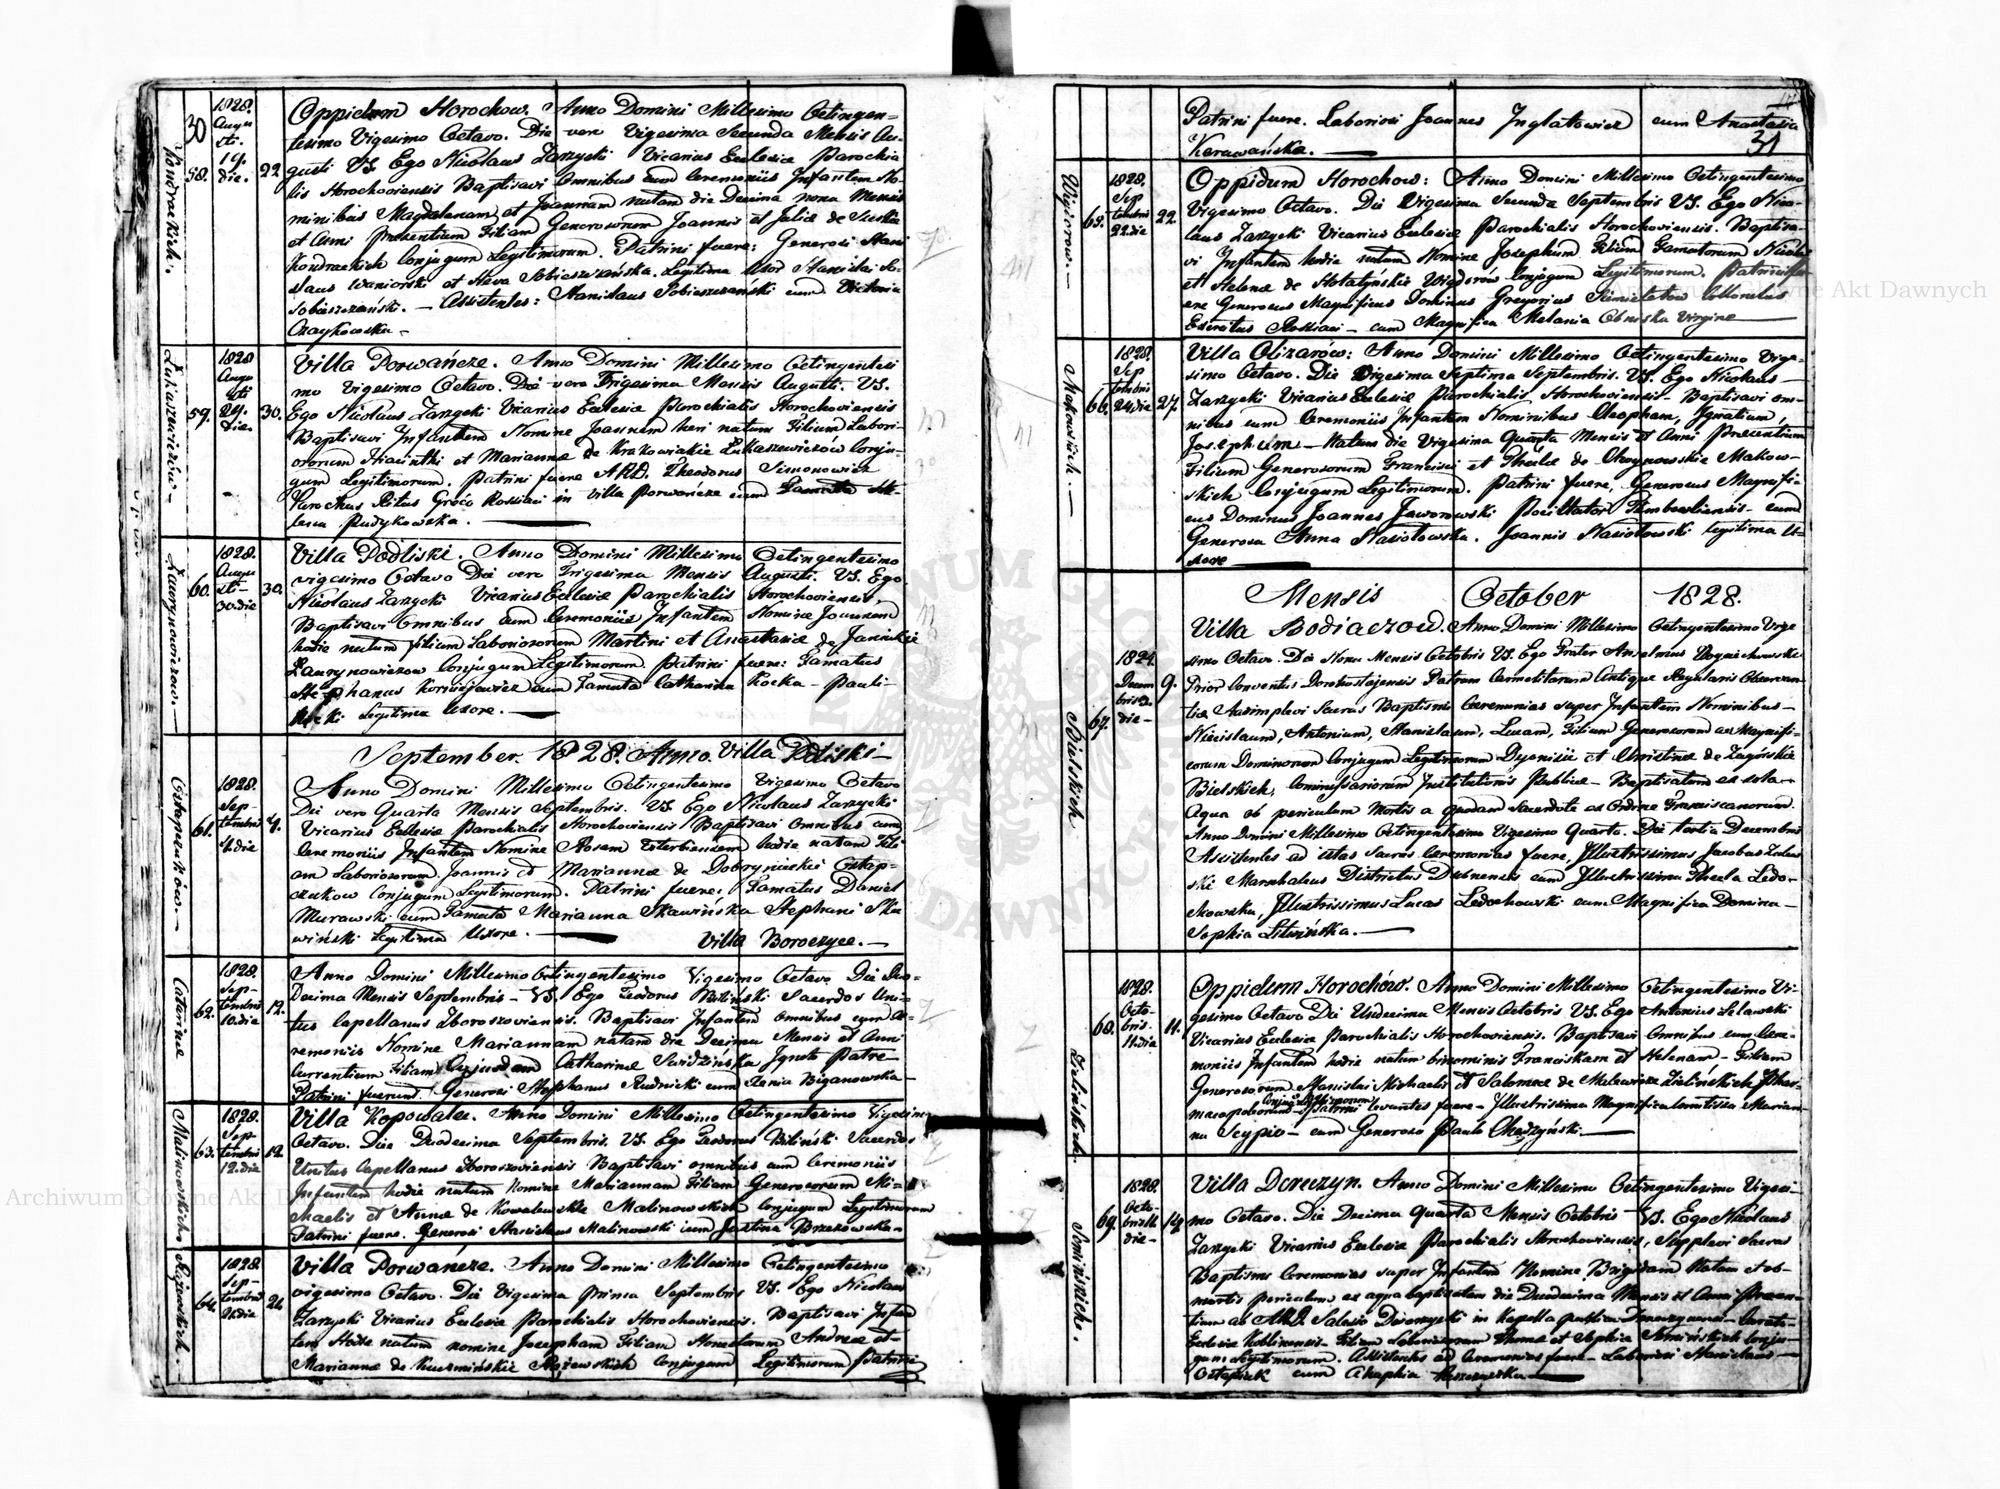 30
Kondrackich.
58.
1828.
Augu
sti.
19.
die.
22
Oppidum Horochow. Anno Domini Millesimo Octingen=
tesimo Vigesimo Octavo. Die vero Vigesima Secunda Mensis Au-
gusti VS. Ego Nicolaus Zarzycki Vicarius Eclesiæ Parochia
lis Horochoviensis Baptisavi Omnibus cum Ceremoniis Infantem No-
minibus Magdalenam et Joannam natam die Decima nona Mensis
et Anni Presentium Filiam Generosorum Joannis et Juliæ de
Kondrackich Conjugum Legitimorum. Patrini fuere: Generosi Stani
slaus Waniorski et Heva Sobieszczańska. Legitima Uxor Stanislai So-
Sobieszczański. — Assistentes: Stanislaus Sobieszczański cum Victoria
Czaykowska –
Łukaszewiczów –
59.
1828
Augu
sti
29.
die.
30.
Villa Porwańcze. Anno Domini Millesimo Octingentesi
mo Vigesimo Octavo. Die vero Trigesima Mensis Augusti. VS.
Ego Nicolaus Zarzycki Vicarius Eclesiæ Parochialis Horochoviensis
Baptisavi Infantem Nomine Joannem heri natum Filium Labori-
osorum Hiacinthi et Mariannæ de Krakowiakie Łukaszewiczów Conju-
gum Legitimorum. Patrini fuere ARD. Theodorus Simonowicz
Parochus Ritus Græco Rossiaci in Villa Porwańcze cum Famata
Pudykowska. —
Zaurynowiczow. —
60.
1828.
Augu
sti –
30. die
30.
Villa Podliski. Anno Domini Millesimo Octingentesimo
vigesimo Octavo Die vero Trigesima Mensis Augusti. VS. Ego
Nicolaus Zarzycki Vicarius Eclesiæ Parochialis Horochoviensis,
Baptisavi omnibus cum Ceremoniis Infantem Nomine Joannem
hodie natum filium Laboriosorum Martini et Anastasiæ de
Laurynowiczow Conjugum Legitimorum. Patrini fuere: Famatus
Stephanus cum Famata Catharina Kocka – Pauli –
Kocki Legitima Uxore. —
September. 1828. Anno. Villa Podliski –
Ostapczuków. —
61.
1828.
Sep-
tembris
4. die
4.
Anno Domini Millesimo Octingentesimo Vigesimo Octavo
Die vero Quarta Mensis Septembris. VS. Ego Nicolaus Zarzycki
Vicarius Eclesiæ Parochialis Horochoviensis Baptisavi Omnibus cum
Ceremoniis Infantem Nomine Rosam Viterbiensem hodie natam Fili
am Laboriosorum Joannis et Mariannæ de Ostap-
czukow Conjugum Legitimorum. Patrini fuere: Famatus Daniel
Murawski cum Famata Marianna Skawińska Stephani Ska
wiński Legitima Uxore. —
Villa Boroczyce. —
Catarinæ
62.
1828.
Sep-
tembris
10. die
12.
Anno Domini Millesimo Octingentesimo Vigesimo Octavo Die Duo-
Decima Mensis Septembris – VS. Ego Teodorus Biliński Sacerdos Uni-
tus Capellanus Zboroszoviensis. Baptisavi Infantem omnibus cum Ce-
remoniis Nomine Mariannam natam die Decima Mensis et Anni
Currentium Filiam Cujusdam Catharinæ Ignoto Patre
Patrini fuerunt. Generosi Stephanus Rudnicki cum Xenia Biganowska –
Malinowskich
63.
1828
Sep-
tembris
12. die
12.
Villa Kopowalce. Anno Domini Millesimo Octingentesimo Vigesimo
Octavo. Die Duodecima Septembris. VS. Ego Teodorus Biliński Sacerdos
Unitus Capellanus Zboroszoviensis Baptisavi omnibus cum Ceremoniis
Infantem hodie natam Nomine Mariannam Filiam Generosorum Mi=
chaelis et Annæ de Kowalewskie Malinowskich Conjugum Legitimorum
Patrini fuere. Generosi Stanislaus Malinowski cum Justina Brzozowska –
64.
1828
Sep-
tembris
21. die
21
Villa Porwańcze. Anno Domini Millesimo Octingentesimo
vigesimo Octavo. Die Vigesima prima Septembris VS. Ego Nicolaus
Zarzycki Vicarius Eclesiæ Parochialis Horochoviensis. Baptisavi Infan
tem Hodie natam nomine Josepham Filiam Honestorum Andreæ et –
Mariannæ de Kuczmińskie Conjugum Legitimorum Patrini
31
Patrini fuere. Laboriosi Joannes Inglatowicz cum Anastasia
Karawańska. —
Wigiorow. —
65.
1828.
Sep
tembris
22. die
22.
Oppidum Horochow: Anno Domini Millesimo Octingentesimo
Vigesimo Octavo. Die Vigesima Secunda Septembris VS. Ego Nico-
laus Zarzycki Vicarius Eclesiæ Parochialis Horochoviensis. Baptisa-
vi Infantem hodie natum Nomine Josephum Filium Famatorum
et Helenæ de Hołatyńskie Wigiorów Conjugum Legitimorum. Patrini fu-
ere Generosus Magnificus Dominus Gregorius
Exercitus Rossiaci – cum Magnifica Melania Obniska Virgine —
Makowskich. —
66.
1828.
Sep
tembris
24. die
27.
Villa Olizarów: Anno Domini Millesimo Octingentesimo Vige-
simo Octavo. Die Vigesima Septima Septembris. VS. Ego Nicolaus –
Zarzycki Vicarius Eclesiæ Parochialis Horochoviensis – Baptisavi om-
nibus cum Ceremoniis Infantem Nominibus Cleopham, Ignatium,
Josephum – Natum die Vigesima Quarta Mensis et Anni Præsentium
Filium Generosorum Francisci et Theclæ de Chrynowskie Makow-
skich Conjugum Legitimorum. Patrini fuere, Generosus Magnifi-
cus Dominus Joannes Jaworowski cum
Generosa Anna Nasiołowska. Joannis Nasiołowski Legitima U-
xore —
Mensis October 1828.
Bielskich
67.
1824.
Decem
bris 3.
die –
9.
Villa Bodiaczow. Anno Domini Millesimo Octingentesimo Vige
simo Octavo. Die Nona Mensis Octobris VS. Ego Frater Anselmus
Prior Conventus Dorohostajensis Patrum Carmelitarum Antiquæ Regularis Observan
tiæ Adimplevi Sacras Baptismi Ceremonias super Infantem Nominibus –
Miecislaum, Antonium, Stanislaum, Lucam, Filium Generosorum ac Magnifi-
corum Dominorum Conjugum Legitimorum Dyonisii et Christinæ de Zagórskie
Bielskich, Commissariorum Institutionis Publicæ – Baptisatum ex sola –
Aqua ob periculum Mortis a quodam Sacerdote ex Ordine Franciscanorum.
Anno Domini Millesimo Octingentesimo Vigesimo Quarto. Die tertia Decembris
Assistentes ad istas Sacras Ceremonias fuere, Illustrissimus Jacobus
Marschalcus Districtus Dubnensis cum Illustrissima Thecla Ledo-
chowska, Illustrissimus Lucas Ledochowski cum Magnifica Domina –
Sophia Litwińska. —
Zielińskich.
68.
1828.
Octo-
bris.
11. die
11.
Oppidum Horochów. Anno Domini Millesimo Octingentesimo Vi-
gesimo Octavo Die Undecima Mensis Octobris VS. Ego Antonius Lelawski
Vicarius Eclesiæ Parochialis Horochoviensis. Baptisavi Omnibus cum Cere-
moniis Infantem hodie natam binominis Franciskam et Helenam – Filiam
Generosorum Stanislai Michaelis et Salomeæ de Malewicze Zielińskich Phar-
macopolorum Conjugum Legitimorum – Patrini levantes fuere – Illustrissima Magnifica Comitissa Marian-
na Scypio – cum Generoso Paulo —
Somińskich.
69.
1828.
Octo-
bris 12
die –
14
Villa Doruzyn. Anno Domini Millesimo Octingentesimo Vigesi-
mo Octavo. Die Decima Quarta Mensis Octobris VS. Ego Nicolaus
Zarzycki Vicarius Eclesiæ Parochialis Horochoviensis, Supplevi Sacras
Baptismi Ceremonias super Infantem Nomine Brigidam Natam et ob –
mortis periculum, ex aqua baptisatam die Duodecima Mensis et Anni Præsen-
tium ab A.R.D. Salesio in Kapella publica
Eclesiæ Koblinensis – Filiam Laboriosorum Thomæ et Sophiæ Somińskich Conju-
gum Legitimorum. Assistentes ad Ceremonias fuere – Laboriosi Stanislaus –
Ostapiuk cum Ahaphia —
Archiwum Główne Akt Dawnych
Archiwum Główne Akt Dawnych